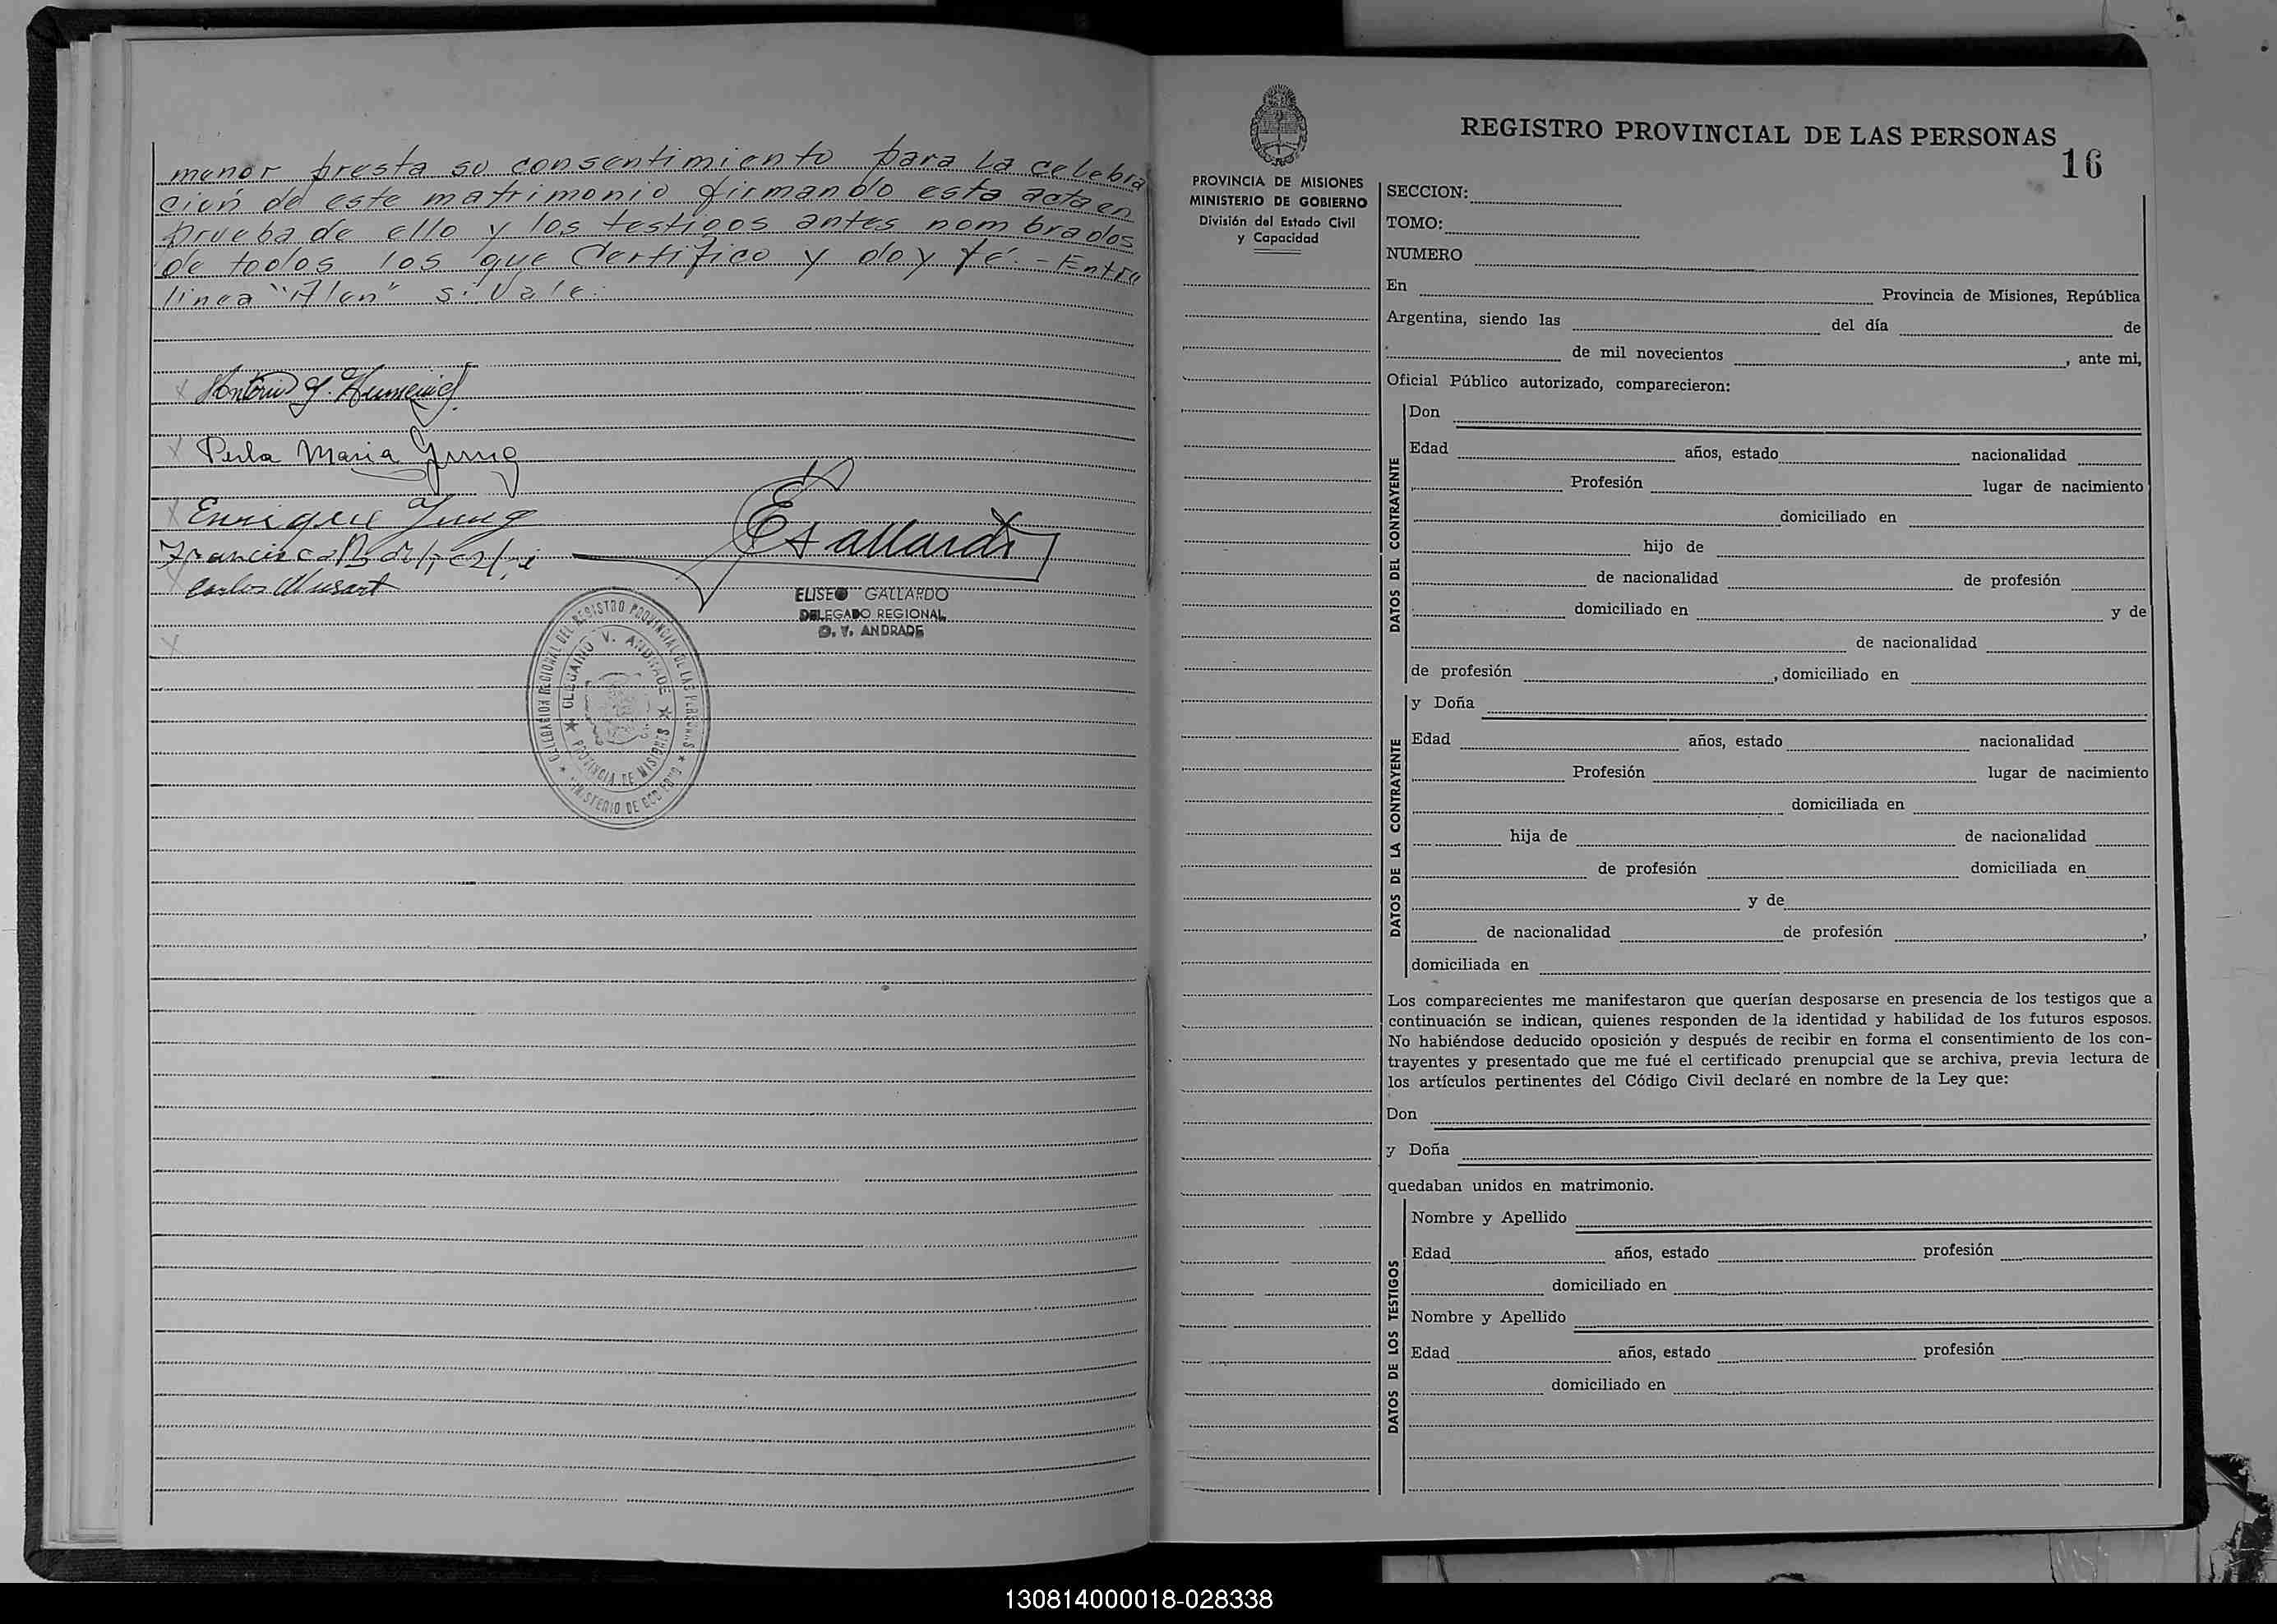 menor presta su consentimiento para la celebra
ción de este matrimonio firmando esta acta en
prueba de ello y los testigos antes nombrados
de todos los que Certifico y doy fé. - Entre
linea "Alen" si Vale.
Perla Maria Jung
Enrique Jung
Carlos
ELISEO GALLARDO
DELEGADO REGIONAL
O. V. ANDRADE
DELEGACION REGIONAL DEL REGISTRO PROVINCIAL DE LAS PERSONAS
OLEGARIO V. ANDRADE
PROVINCIA DE MISIONES
MINISTERIO DE GOBIERNO
REGISTRO PROVINCIAL DE LAS PERSONAS
16
PROVINCIA DE MISIONES
MINISTERIO DE GOBIERNO
División del Estado Civil
y Capacidad
SECCION:
TOMO:
NUMERO
En Provincia de Misiones, República
Argentina, siendo las del día de
de mil novecientos , ante mi,
Oficial Público autorizado, comparecieron:
DATOS DEL CONTRAYENTE
Don
Edad años, estado nacionalidad
Profesión lugar de nacimiento
domiciliado en
hijo de
de nacionalidad de profesión
domiciliado en y de
de nacionalidad
de profesión , domiciliado en
DATOS DE LA CONTRAYENTE
y Doña
Edad años, estado nacionalidad
Profesión lugar de nacimiento
domiciliada en
hija de de nacionalidad
de profesión domiciliada en
y de
de nacionalidad de profesión ,
domiciliada en
Los comparecientes me manifestaron que querían desposarse en presencia de los testigos que a
continuación se indican, quienes responden de la identidad y habilidad de los futuros esposos.
No habiéndose deducido oposición y después de recibir en forma el consentimiento de los con-
trayentes y presentado que me fué el certificado prenupcial que se archiva, previa lectura de
los artículos pertinentes del Código Civil declaré en nombre de la Ley que:
Don
y Doña
quedaban unidos en matrimonio.
DATOS DE LOS TESTIGOS
Nombre y Apellido
Edad años, estado profesión
domiciliado en
Nombre y Apellido
Edad años, estado profesión
domiciliado en
130814000018-028338